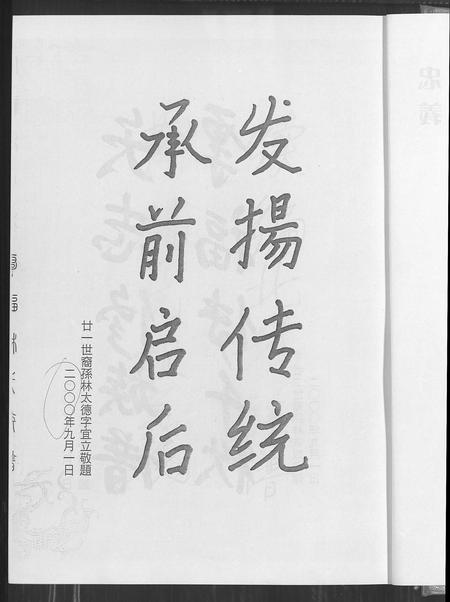 发揚传统
承前启后
廿一世裔孫林太德字宜立敬題
二〇〇〇年九月一日
忠義